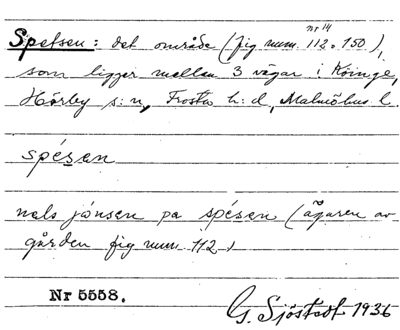 nr 14
Spetsen: det område (fig num. 112 o 150),
som ligger mellan 3 vägar i Köinge,
Hörby s:n, Frosta h:d, Malmöhus l.
spésen
nels jónsen pa spésen (ägaren av
gården fig num 112)
Nr 5558.
G. Sjöstedt 1936